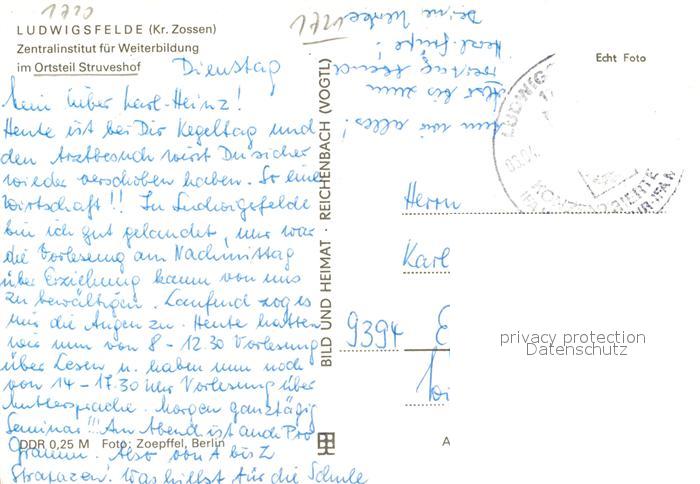 1720
1721
LUDWIGSFELDE (Kr. Zossen)
Zentralinstitut für Weiterbildung
im Ortsteil Struveshof
Dienstag
Mein lieber Karl-Heinz!
Heute ist bei Dir Kegeltag und
den Arztbesuch wirst Du sicher
wieder verschoben haben. So eine
Wirtschaft!! In Ludwigsfelde
bin ich gut gelandet, nur war
die Vorlesung am Nachmittag
über Erziehung kaum von uns
zu bewältigen. Laufend zog es
mir die Augen zu. Heute hatten
wir nun von 8 - 12.30 Vorlesung
über Lesen u. haben nun noch
von 14 - 17.30 Uhr Vorlesung über
Muttersprache. Morgen ganztägig
Seminar!!! Am Abend ist auch Pro
gramm. Also von A bis Z
Strapazen! Was hilfst für die Schule
alles!
Also bis zum
Freitag abend
Herzl. Grüße!
Deine
DDR 0,25 M Foto: Zoepffel, Berlin
BILD UND HEIMAT · REICHENBACH (VOGTL)
Echt Foto
LUDWIGS
Herrn
Karl
9394 E
Wi
A
privacy protection
Datenschutz